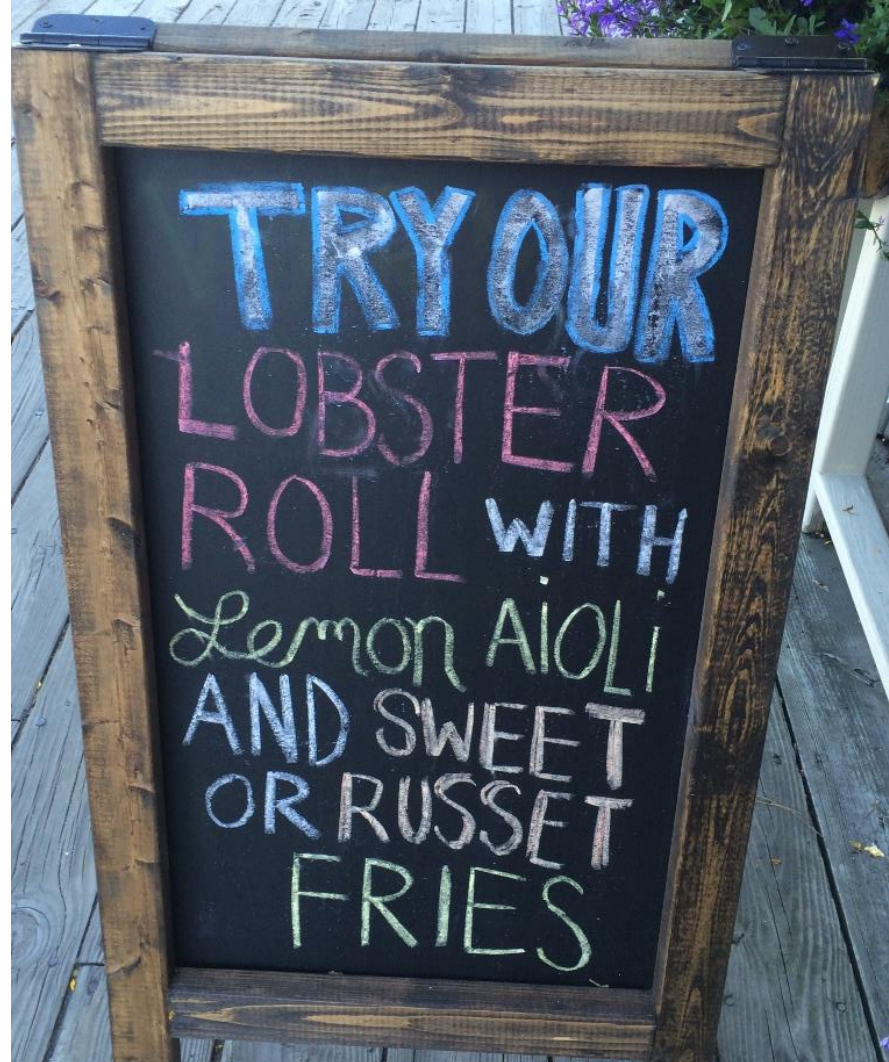 TRY OUR
LOBSTER
ROLL WITH
Lemon AiOLi
AND SWEET
OR RUSSET
FRIES